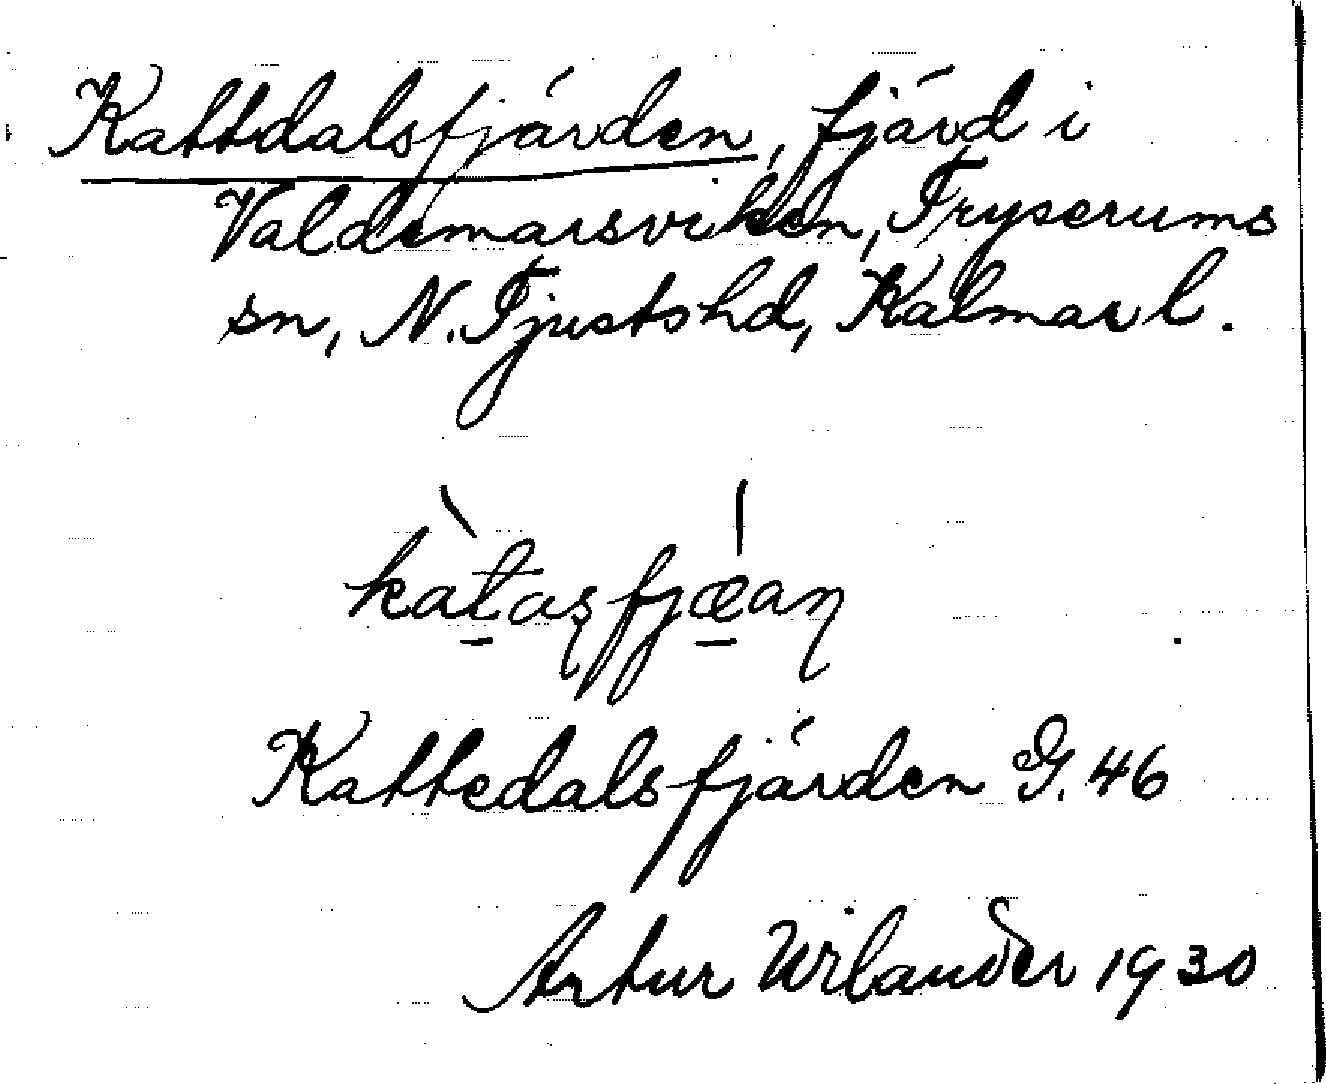 Kattdalsfjärden, fjärd i
Valdemarsviken, Tryserums
sn, N. Tjusts hd, Kalmar l.
kàtasfjæaꞃ
Kattedalsfjärden G. 46
Artur Wilander 1930